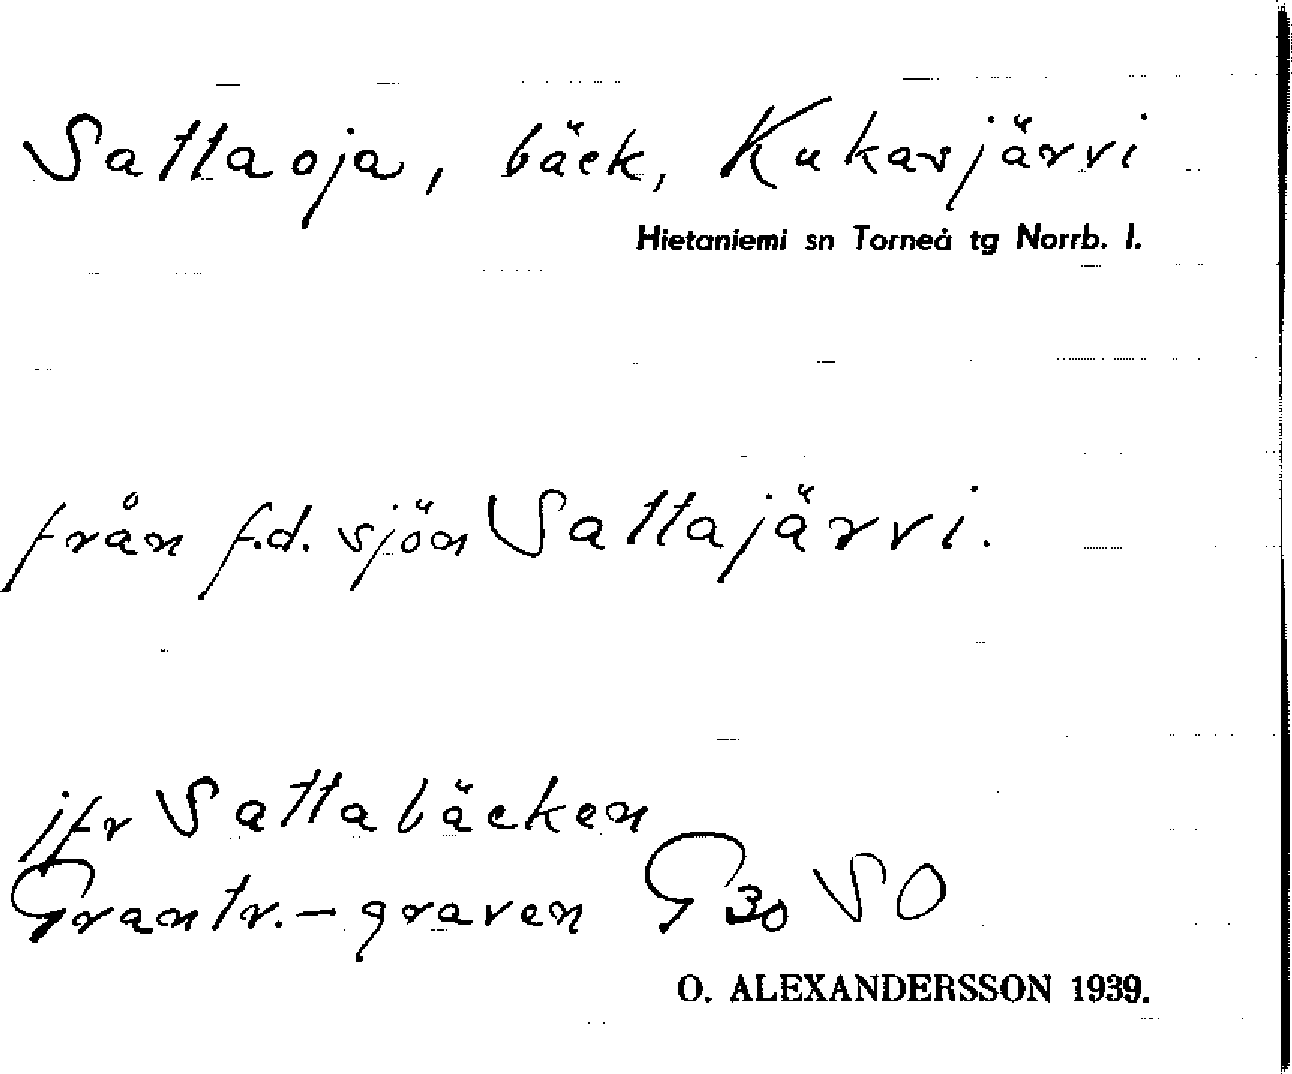 Sattaoja, bäck, Kukasjärvi
Hietaniemi sn Torneå tg Norrb. l.
från f.d. sjön Sattajärvi.
jfr Sattabäcken
Grantr.-graven G 30 SO
O. ALEXANDERSSON 1939.